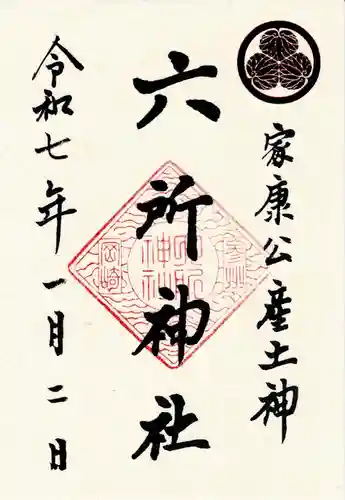 家康公産土神
六所神社
令和七年一月二日
岡崎
六所
神社